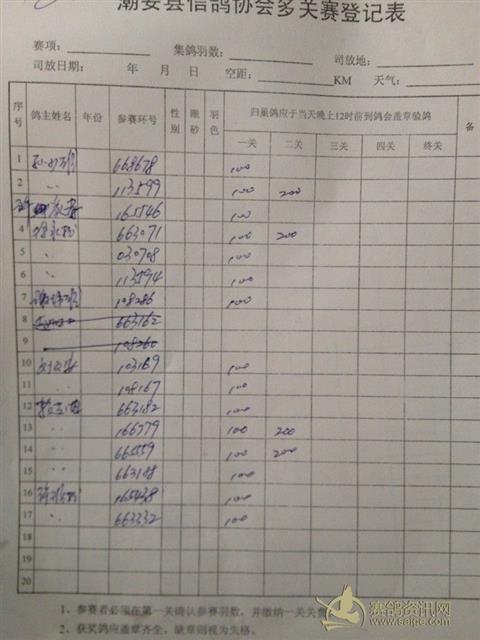 潮安县信鸽协会多关赛登记表
赛项： 集鸽羽数： 司放地：
司放日期： 年 月 日 空距： KM 天气：
序号 鸽主姓名 年份 参赛环号 性别 眼砂 羽色 归巢鸽应于当天晚上12时前到鸽会盖章验鸽 备
一关 二关 三关 四关 终关
1 668678 100
2 〃 113599 100 200
165546 100
4 663071 100 200
5 〃 030708 100
6 〃 113594 100
7 108286 100
8 663162
9 108260
10 103169 100
11 〃 108167 100
12 663182 100
13 〃 166779 100 200
14 〃 665559 100 200
15 〃 663188 100
16 165438 100
17 〃 663332 100
18
19
20
1、参赛者必须在第一关确认参赛羽数，并缴纳一关关费
2、获奖鸽应盖章齐全，缺章则视为失格。
赛鸽资讯网
www.saigc.com